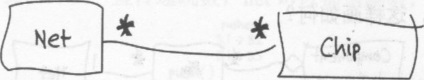 Net * * Chip